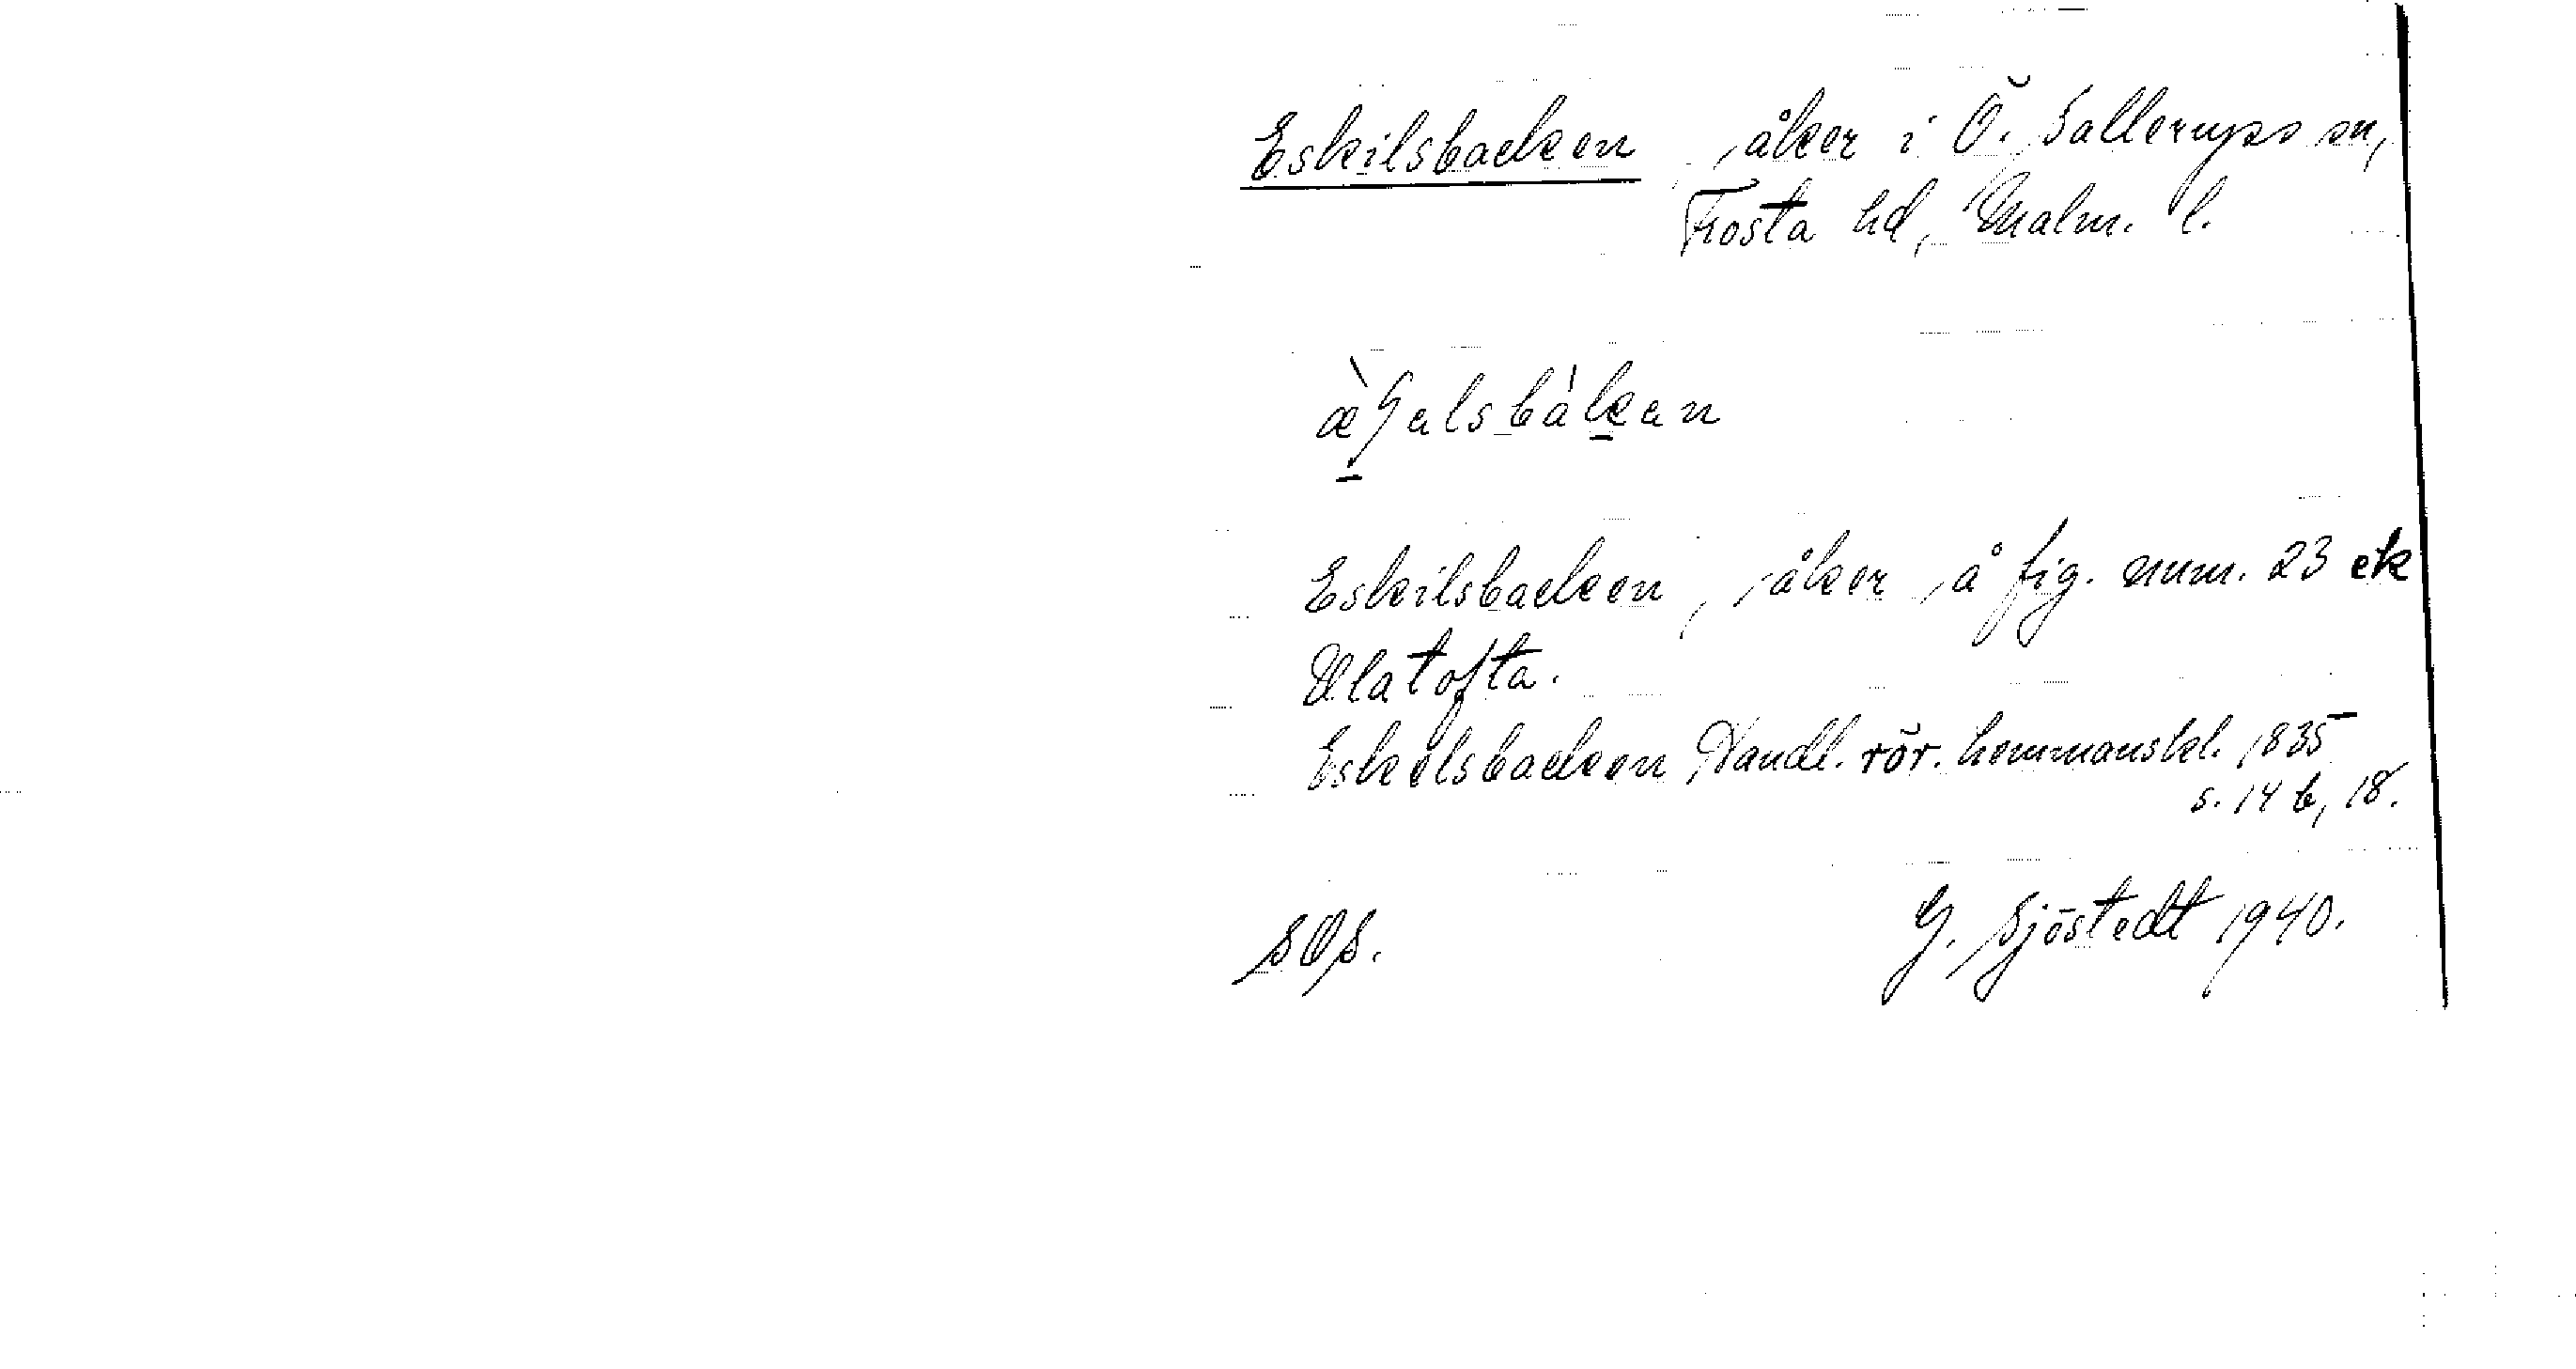 Eskilsbacken, åker i Ö. Sallerups sn,
Frosta hd, Malm. l.
Eskilsbacken, åker å fig. num. 23 ek
Ulatofta.
Eskelsbacken Handl. rör. hemmanskl. 1835
s. 14 b, 18.
SOS. G. Sjöstedt 1940.